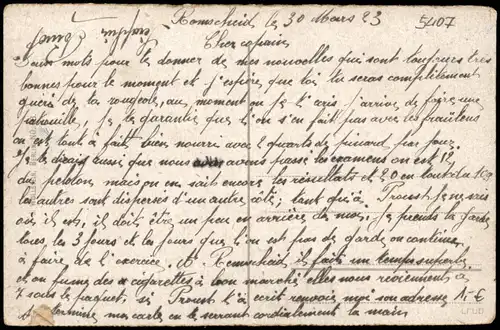 Remscheid le 30 Mars 23
5407
Cher copain,
Deux mots pour te donner de mes nouvelles qui sont toujours très
bonnes pour le moment et j'espère que toi tu seras complètement
guéri de ta rougeole, au moment où je t'écris j'arrive de faire une
patrouille, je te garantie que l'on s'en fait pas avec les fraülens
on est tout à fait bien nourri avec 2 quarts de pinard par jour.
Je te dirais aussi que nous avons passé les examens on est 18
du peloton mais on en sait encore les résultats et 20 en tout du 169
les autres sont dispersés d'un autre côté, tant qu'à Troust je ne sais
où il est, il doit être un peu en arrière de moi, je prends la garde
tous les 3 jours et les jours que l'on est pas de garde on continue
à faire de l'exercice, A Remscheid il fait un temps superbe
et on fume des cigarettes à bon marché elles nous reviennent à
7 sous le paquet, si Troust t'a écrit renvois moi son adresse
dernière ma carte en te serrant cordialement la main